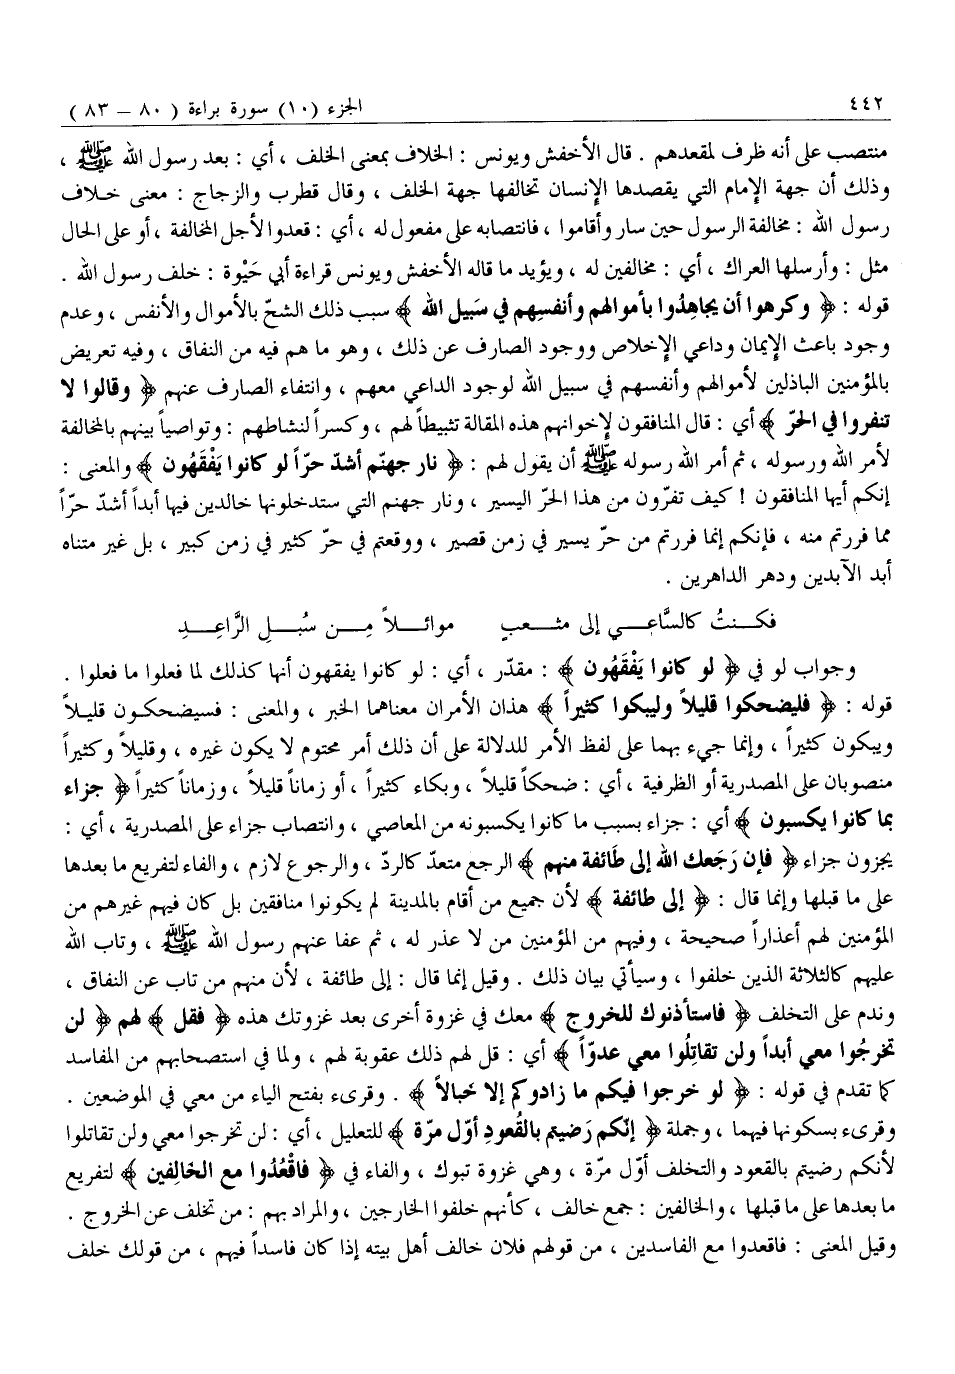 ٤٤٢ الجزء (١٠) سورة براءة ( ٨٠ – ٨٣ )
منتصب على أنه ظرف لمقعدهم . قال الأخفش ويونس : الخلاف بمعنى الخلف ، أي : بعد رسول الله ﷺ ،
وذلك أن جهة الإمام التي يقصدها الإنسان تخالفها جهة الخلف ، وقال قطرب والزجاج : معنى خلاف
رسول الله : مخالفة الرسول حين سار وأقاموا ، فانتصابه على مفعول له ، أي : قعدوا لأجل المخالفة ، أو على الحال
مثل : وأرسلها العراك ، أي : مخالفين له ، ويؤيد ما قاله الأخفش ويونس قراءة أبي حَيْوة : خلف رسول الله .
قوله : ﴿ وكرهوا أن يجاهِدُوا بأموالهم وأنفسِهم في سَبيل الله ﴾ سبب ذلك الشحّ بالأموال والأنفس ، وعدم
وجود باعث الإيمان وداعي الإخلاص ووجود الصارف عن ذلك ، وهو ما هم فيه من النفاق ، وفيه تعريض
بالمؤمنين الباذلين لأموالهم وأنفسهم في سبيل الله لوجود الداعي معهم ، وانتفاء الصارف عنهم ﴿ وقالوا لا
تنفروا في الحرّ ﴾ أي : قال المنافقون لإخوانهم هذه المقالة تثبيطاً لهم ، وكسراً لنشاطهم : وتواصياً بينهم بالمخالفة
لأمر الله ورسوله ، ثم أمر الله رسوله ﷺ أن يقول لهم : ﴿ نار جهنّم أشدّ حرّاً لو كانوا يَفْقَهُون ﴾ والمعنى :
إنكم أيها المنافقون ! كيف تفرّون من هذا الحرّ اليسير ، ونار جهنم التي ستدخلونها خالدين فيها أبداً أشدّ حرّاً
مما فررتم منه ، فإنكم إنما فررتم من حرّ يسير في زمن قصير ، ووقعتم في حرّ كثير في زمن كبير ، بل غير متناه
أبد الآبدين ودهر الداهرين .
فكنتُ كالسَّاعي إلى مثعبٍ موائلاً مِن سُبلِ الرَّاعِدِ
وجواب لو في ﴿ لو كانوا يَفْقَهُون ﴾ : مقدّر ، أي : لو كانوا يفقهون أنها كذلك لما فعلوا ما فعلوا .
قوله : ﴿ فليضحكوا قليلاً وليبكوا كثيراً ﴾ هذان الأمران معناهما الخبر ، والمعنى : فسيضحكون قليلاً
ويبكون كثيراً ، وإنما جيء بهما على لفظ الأمر للدلالة على أن ذلك أمر محتوم لا يكون غيره ، وقليلاً وكثيراً
منصوبان على المصدرية أو الظرفية ، أي : ضحكاً قليلاً ، وبكاء كثيراً ، أو زماناً قليلاً ، وزماناً كثيراً ﴿ جزاء
بما كانوا يكسبون ﴾ أي : جزاء بسبب ما كانوا يكسبونه من المعاصي ، وانتصاب جزاء على المصدرية ، أي :
يجزون جزاء ﴿ فإن رَجَعك الله إلى طَائفة منهم ﴾ الرجع متعدّ كالردّ ، والرجوع لازم ، والفاء لتفريع ما بعدها
على ما قبلها وإنما قال : ﴿ إلى طائفة ﴾ لأن جميع من أقام بالمدينة لم يكونوا منافقين بل كان فيهم غيرهم من
المؤمنين لهم أعذاراً صحيحة ، وفيهم من المؤمنين من لا عذر له ، ثم عفا عنهم رسول الله ﷺ ، وتاب الله
عليهم كالثلاثة الذين خلفوا ، وسيأتي بيان ذلك . وقيل إنما قال : إلى طائفة ، لأن منهم من تاب عن النفاق ،
وندم على التخلف ﴿ فاستأذنوك للخروج ﴾ معك في غزوة أخرى بعد غزوتك هذه ﴿ فقل ﴾ لهم ﴿ لن
تخرجُوا معي أبداً ولن تقاتِلُوا معي عدوّاً ﴾ أي : قل لهم ذلك عقوبة لهم ، ولما في استصحابهم من المفاسد
كما تقدم في قوله : ﴿ لو خرجوا فيكم ما زادوكم إلا خَبالاً ﴾ . وقرىء بفتح الياء من معي في الموضعين .
وقرىء بسكونها فيهما ، وجملة ﴿ إنّكم رَضيتم بالقُعودِ أوّل مرّة ﴾ للتعليل ، أي : لن تخرجوا معي ولن تقاتلوا
لأنكم رضيتم بالقعود والتخلف أوّل مرّة ، وهي غزوة تبوك ، والفاء في ﴿ فاقْعُدُوا مع الخالِفين ﴾ لتفريع
ما بعدها على ما قبلها ، والخالفين : جمع خالف ، كأنهم خلفوا الخارجين ، والمراد بهم : من تخلف عن الخروج .
وقيل المعنى : فاقعدوا مع الفاسدين ، من قولهم فلان خالف أهل بيته إذا كان فاسداً فيهم ، من قولك خلف